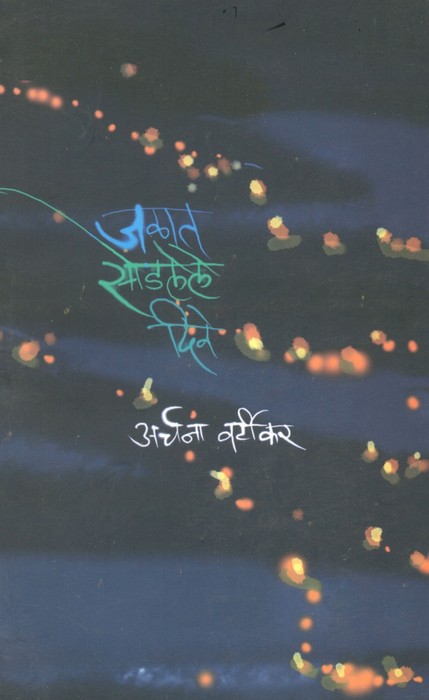 जळात
सोडलेले
दिवे
अर्चना वर्टीकर